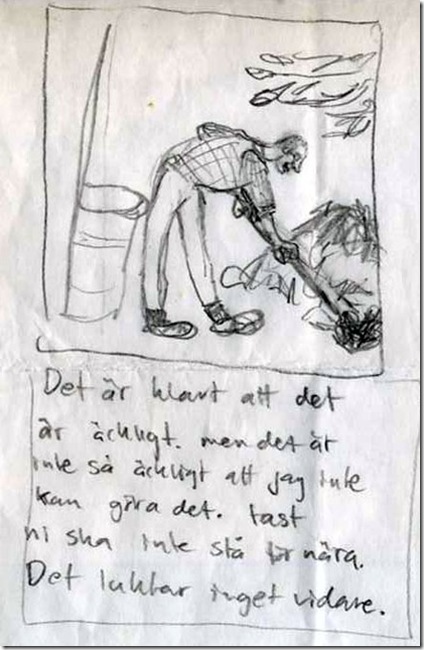 Det är klart att det
är äckligt. men det är
inte så äckligt att jag inte
kan göra det. fast
ni ska inte stå för nära.
Det luktar inget vidare.